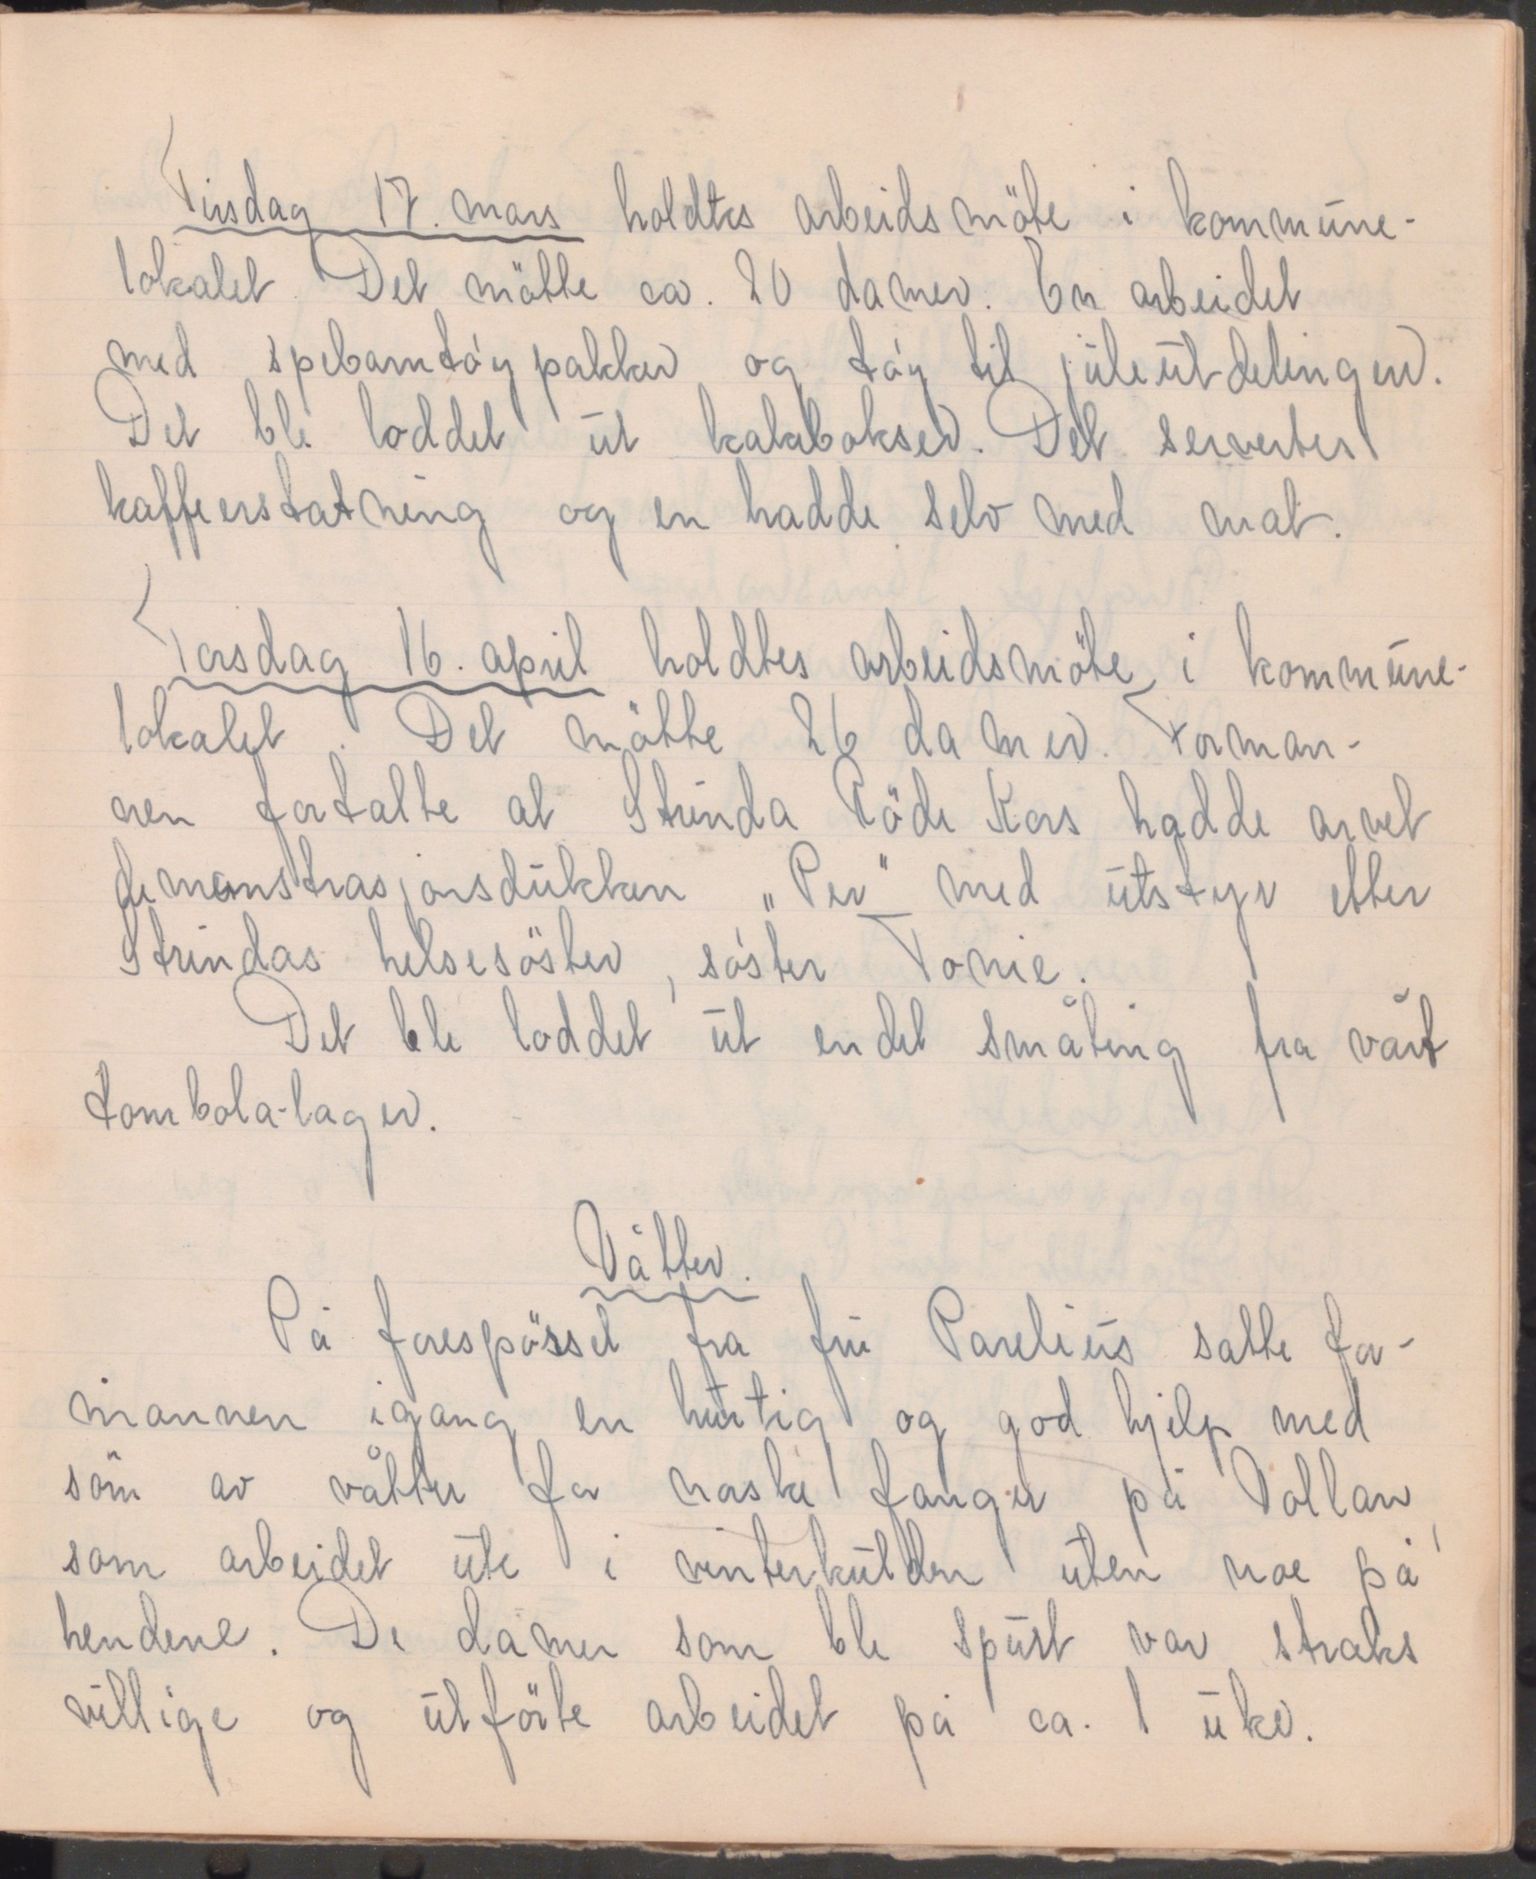 Tirsdag 17. mars holdtes arbeidsmöte i kommune-
lokalet. Det mötte ca. 20 damer. En arbeidet
med spebarntöypakker og töy til juleutdelingen.
Det ble loddet ut kakebokser. Det servertes
kaffeerstatning og en hadde selv med mat.
Torsdag 16. april holdtes arbeidsmöte i kommune-
lokalet. Det mötte 26 damer. Forman-
nen fortalte at Strinda Röde Kors hadde arvet
demonstrasjonsdukken „Per" med utstyr etter
Strindas helsesöster, söster Tonie.
Det ble loddet ut endel småting fra vårt
tombola-lager.
Våtter.
På forespörsel fra fru Parelius satte for-
mannen igang en hurtig og god hjelp med
söm av våtter for norske fanger på Vollan,
som arbeidet ute i vinterkulden uten noe på
hendene. De damer som ble spurt var straks
villige og utförte arbeidet på ca. 1 uke.